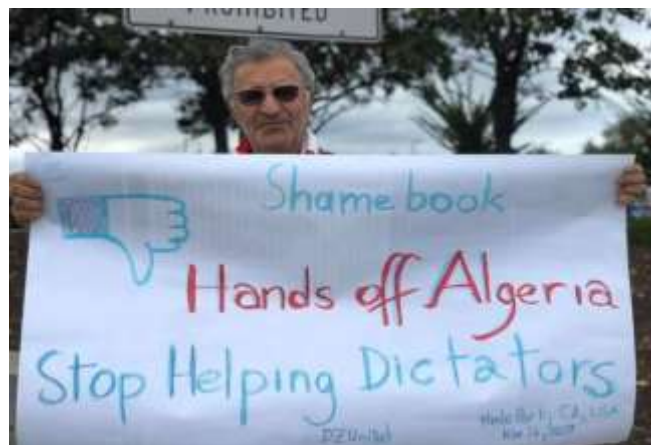 PROHIBITED
Shamebook
Hands off Algeria
Stop Helping Dictators
DZUnited
Menlo Park, CA, USA